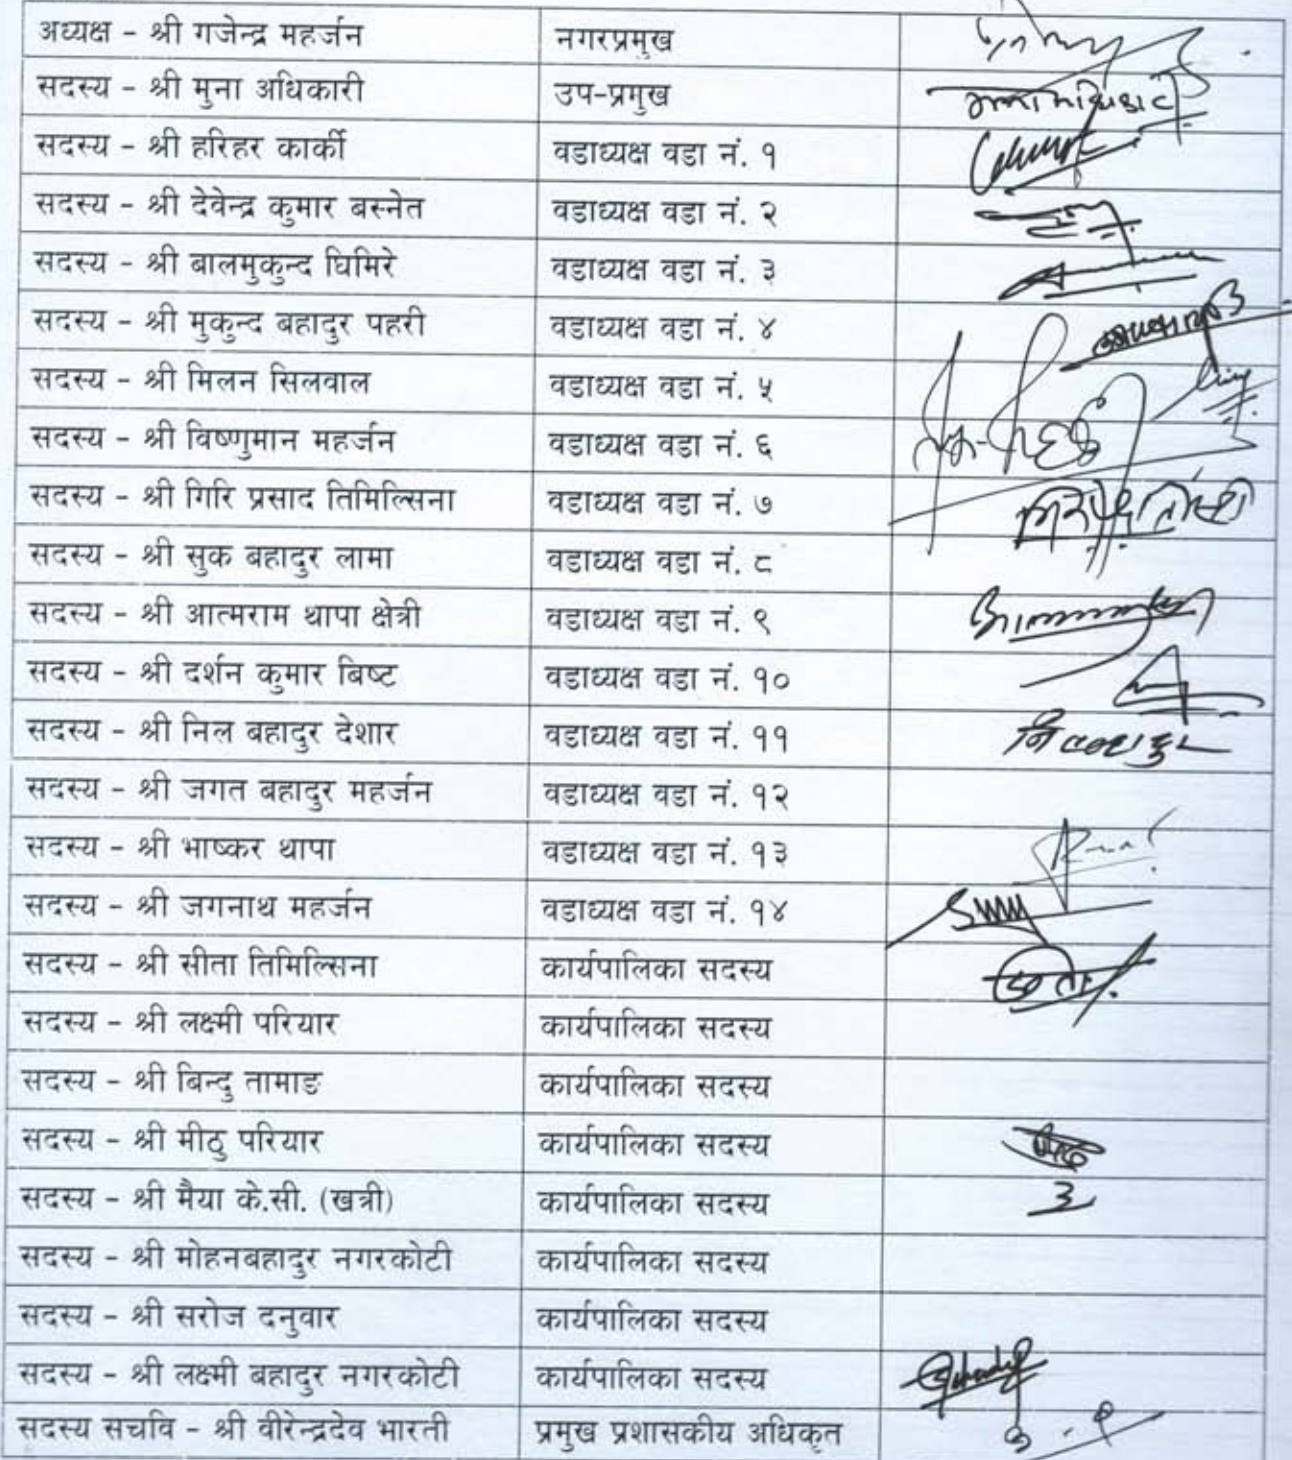 अध्यक्ष - श्री गजेन्द्र महर्जन नगरप्रमुख
सदस्य - श्री मुना अधिकारी उप-प्रमुख
सदस्य - श्री हरिहर कार्की वडाध्यक्ष वडा नं. १
सदस्य - श्री देवेन्द्र कुमार बस्नेत वडाध्यक्ष वडा नं. २
सदस्य - श्री बालमुकुन्द घिमिरे वडाध्यक्ष वडा नं. ३
सदस्य - श्री मुकुन्द बहादुर पहरी वडाध्यक्ष वडा नं. ४
सदस्य - श्री मिलन सिलवाल वडाध्यक्ष वडा नं. ५
सदस्य - श्री विष्णुमान महर्जन वडाध्यक्ष वडा नं. ६
सदस्य - श्री गिरि प्रसाद तिमिल्सिना वडाध्यक्ष वडा नं. ७
सदस्य - श्री सुक बहादुर लामा वडाध्यक्ष वडा नं. ८
सदस्य - श्री आत्मराम थापा क्षेत्री वडाध्यक्ष वडा नं. ९
सदस्य - श्री दर्शन कुमार बिष्ट वडाध्यक्ष वडा नं. १०
सदस्य - श्री निल बहादुर देशार वडाध्यक्ष वडा नं. ११
सदस्य - श्री जगत बहादुर महर्जन वडाध्यक्ष वडा नं. १२
सदस्य - श्री भाष्कर थापा वडाध्यक्ष वडा नं. १३
सदस्य - श्री जगनाथ महर्जन वडाध्यक्ष वडा नं. १४
सदस्य - श्री सीता तिमिल्सिना कार्यपालिका सदस्य
सदस्य - श्री लक्ष्मी परियार कार्यपालिका सदस्य
सदस्य - श्री बिन्दु तामाङ कार्यपालिका सदस्य
सदस्य - श्री मीठु परियार कार्यपालिका सदस्य
सदस्य - श्री मैया के.सी. (खत्री) कार्यपालिका सदस्य
सदस्य - श्री मोहनबहादुर नगरकोटी कार्यपालिका सदस्य
सदस्य - श्री सरोज दनुवार कार्यपालिका सदस्य
सदस्य - श्री लक्ष्मी बहादुर नगरकोटी कार्यपालिका सदस्य
सदस्य सचवि - श्री वीरेन्द्रदेव भारती प्रमुख प्रशासकीय अधिकृत